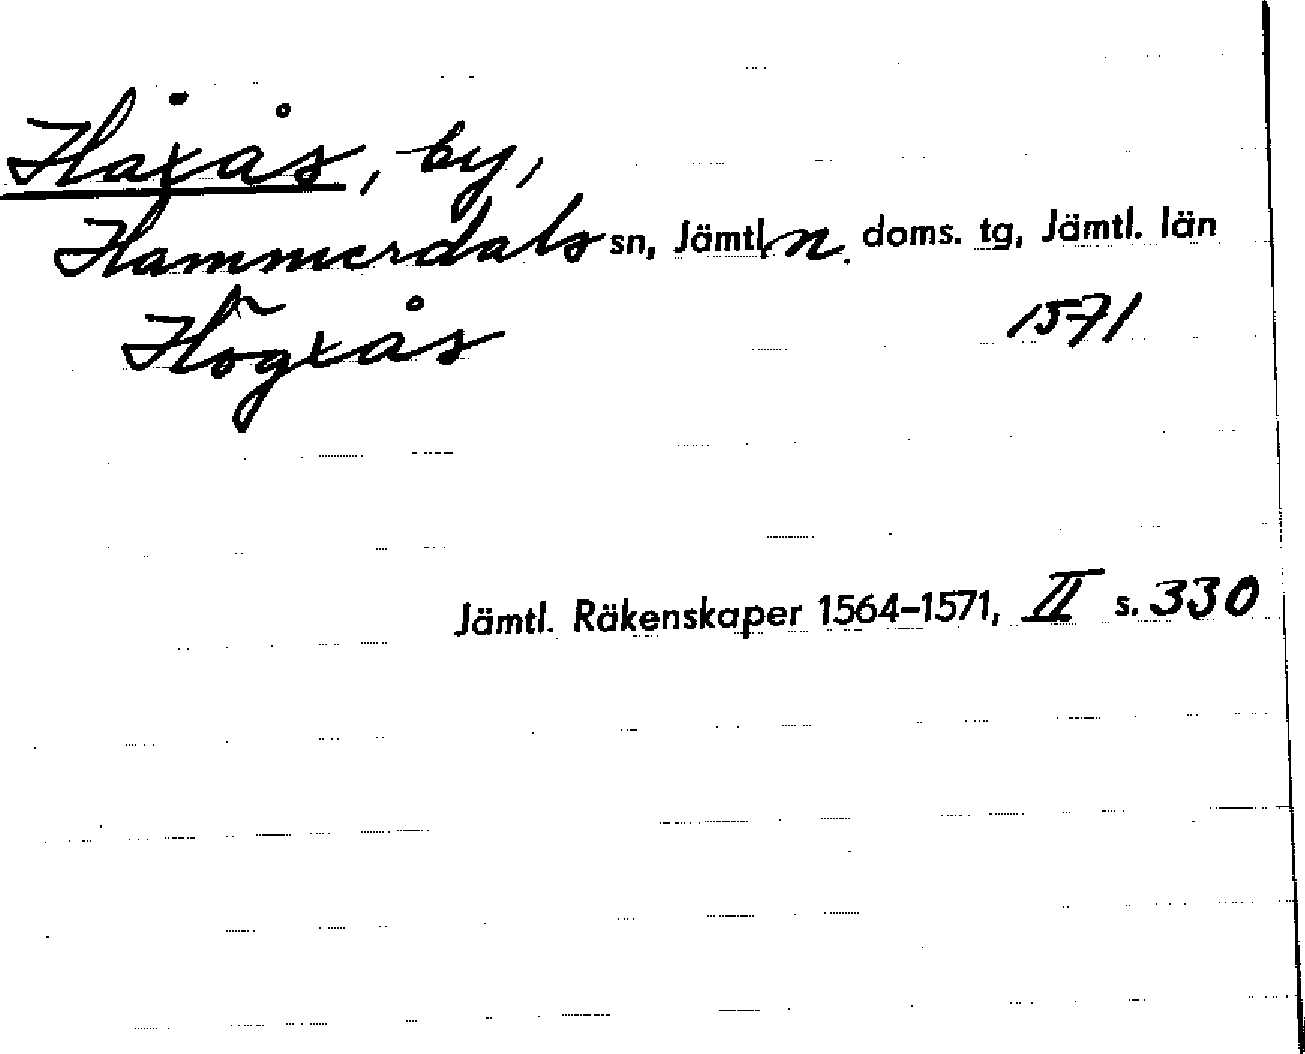 Håxås, by,
Hammerdals sn, Jämtl. n. doms. tg, Jämtl. län
Högxås 1571
Jämtl. Räkenskaper 1564–1571, II s. 330